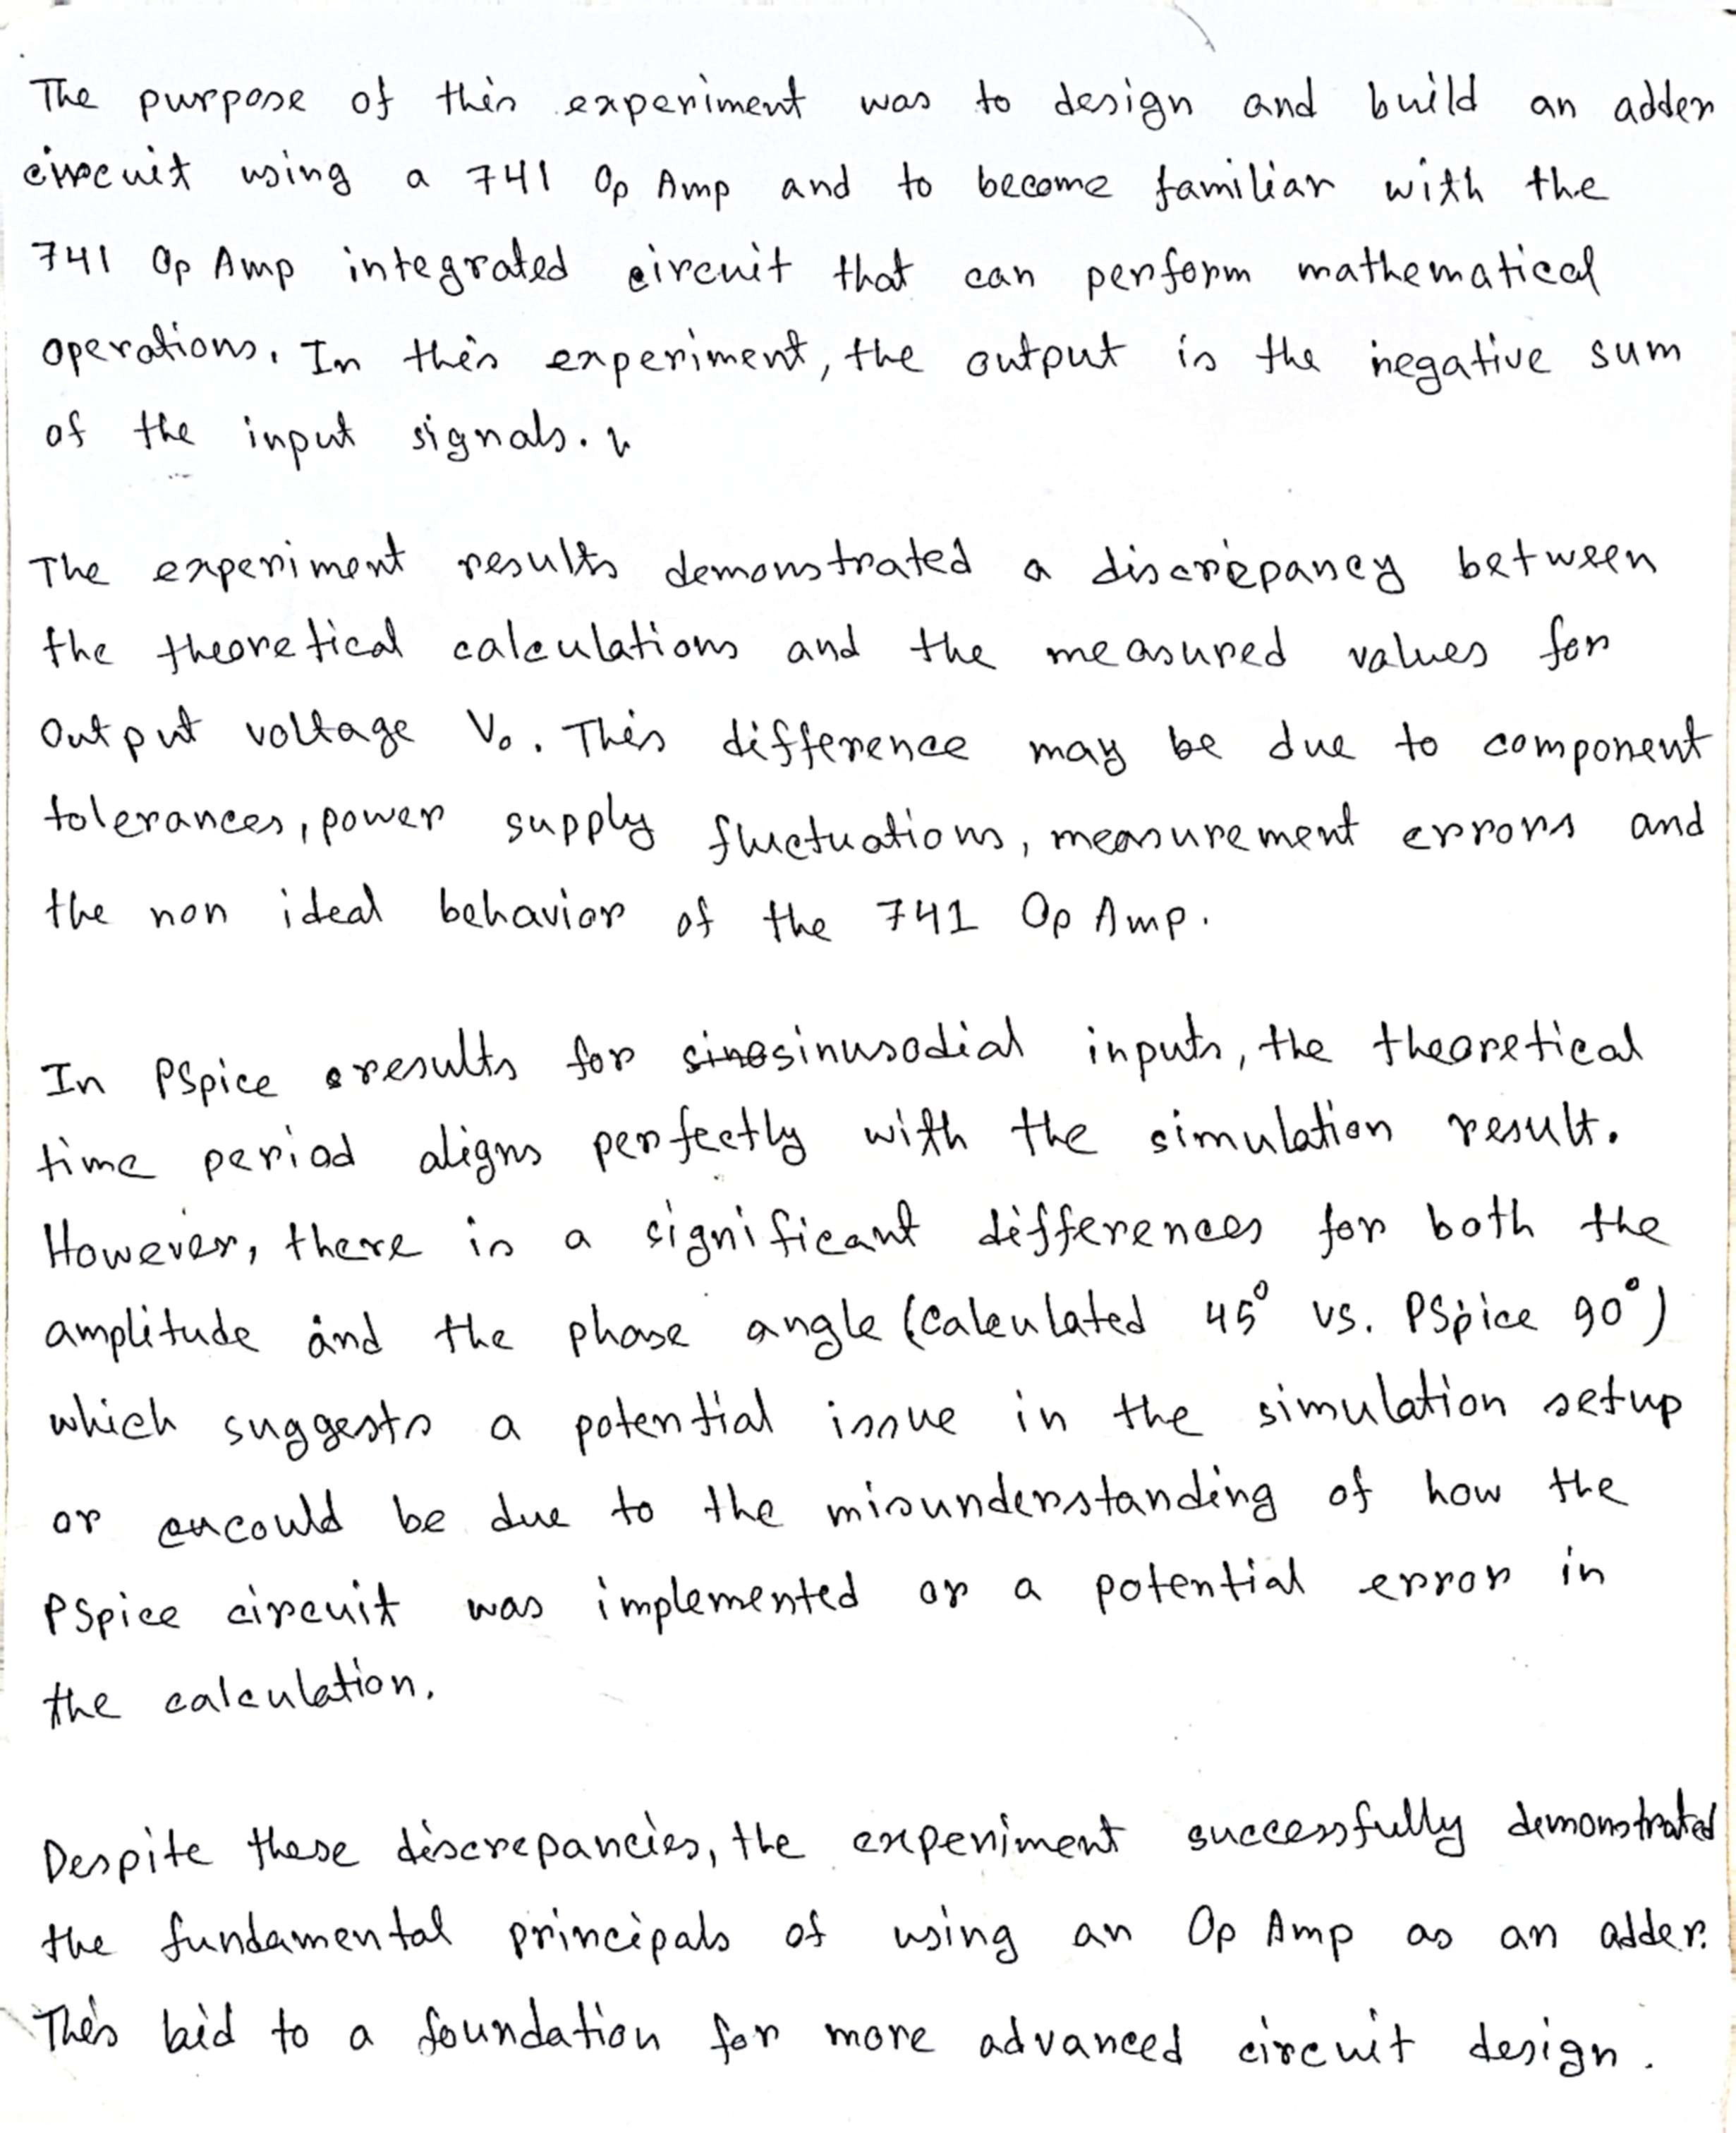 The purpose of this experiment was to design and build an adder
circuit using a 741 Op Amp and to become familiar with the
741 Op Amp integrated circuit that can perform mathematical
operations. In this experiment, the output is the negative sum
of the input signals.
The experiment results demonstrated a discrepancy between
the theoretical calculations and the measured values for
Output voltage Vo. This difference may be due to component
tolerances, power supply fluctuations, measurement errors and
the non ideal behavior of the 741 Op Amp.
In PSpice results for sinusodial inputs, the theoretical
time period aligns perfectly with the simulation result.
However, there is a significant differences for both the
amplitude and the phase angle (Calculated 45° vs. PSpice 90°)
which suggests a potential issue in the simulation setup
or could be due to the misunderstanding of how the
PSpice circuit was implemented or a potential error in
the calculation.
Despite these discrepancies, the experiment successfully demonstrated
the fundamental principals of using an Op Amp as an adder.
This laid to a foundation for more advanced circuit design.